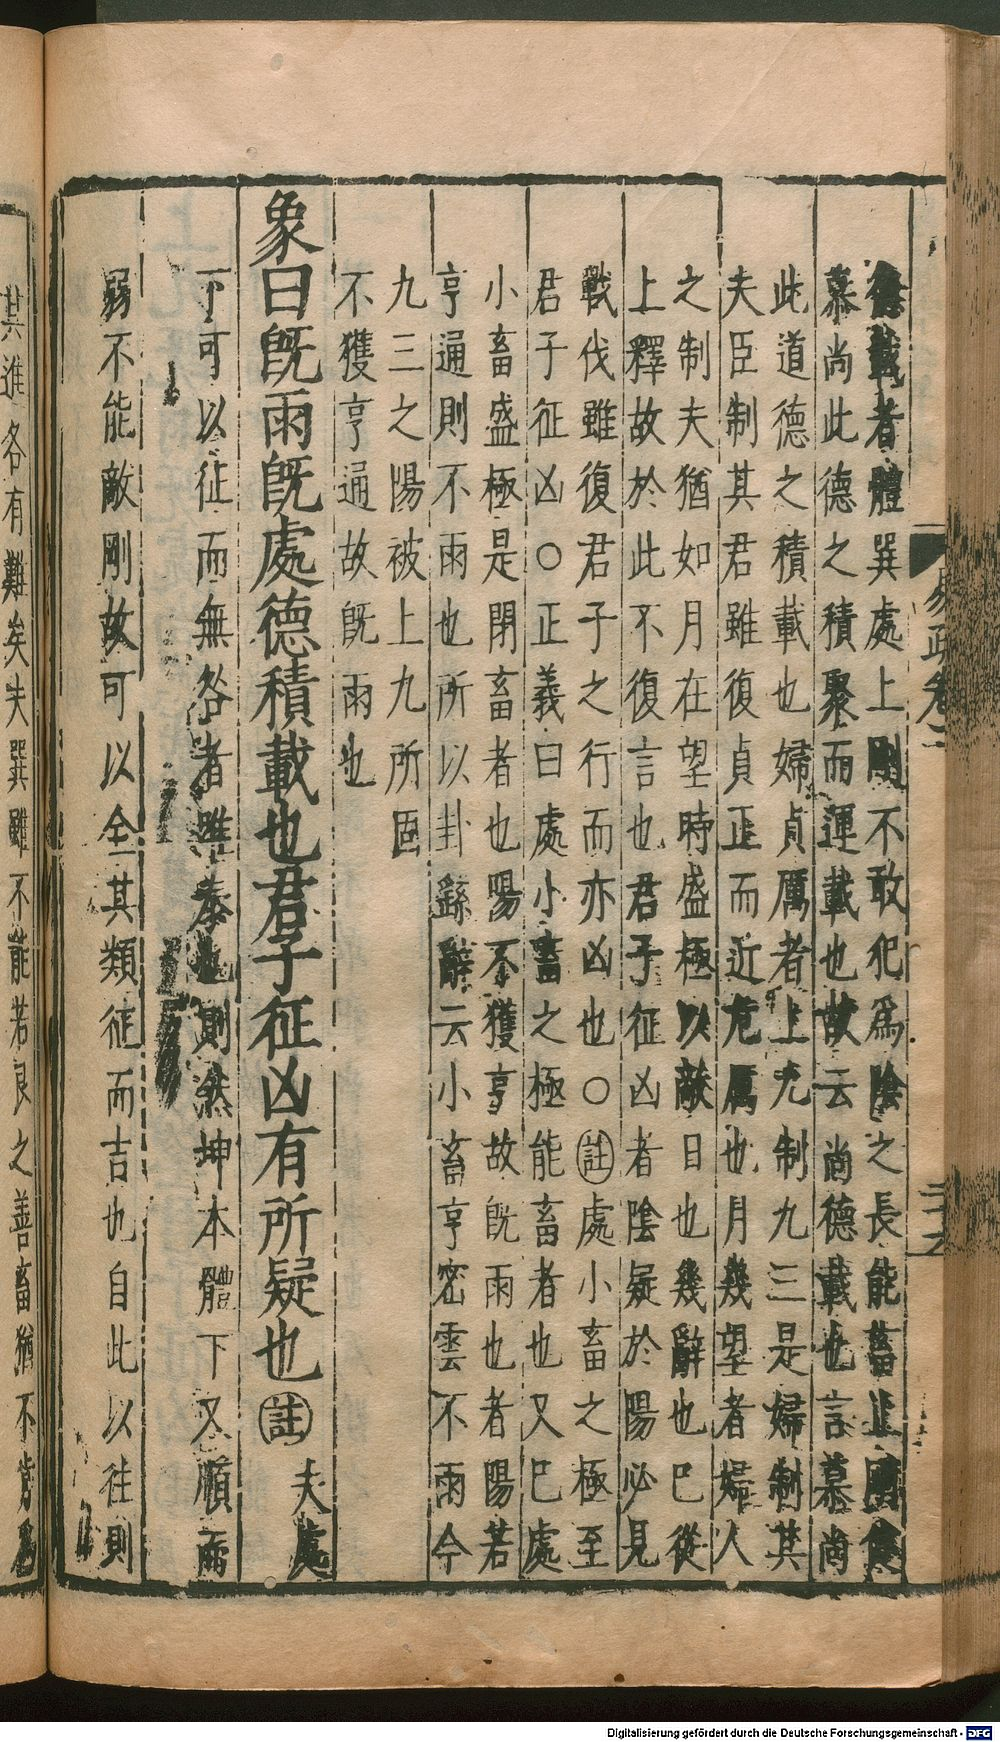 德載者體巽處上剛不敢犯爲陰之長能畜止剛健
慕尚此德之積聚而運載也故云尚德載也言慕尚
此道德之積載也婦貞厲者上九制九三是婦制其
夫臣制其君雖復貞正而近危厲也月幾望者婦人
之制夫猶如月在望時盛極以敵日也幾辭也巳從
上釋故於此不復言也君子征凶者陰疑於陽必見
戰伐雖復君子之行而亦凶也○註處小畜之極至
君子征凶○正義曰處小畜之極能畜者也又巳處
小畜盛極是閉畜者也陽不獲亨故旣雨也者陽若
亨通則不雨也所以卦繇辭云小畜亨密雲不雨今
九三之陽被上九所固
不獲亨通故旣雨也
象曰旣雨旣處德積載也君子征凶有所疑也註夫處
下可以征而無咎者唯泰也則然坤本體下又順而
弱不能敵剛故可以全其類征而吉也自此以往則
其進各有難矣夫巽雖不能若艮之善畜猶不肯爲
易疏卷二
Digitalisierung gefördert durch die Deutsche Forschungsgemeinschaft - DFG